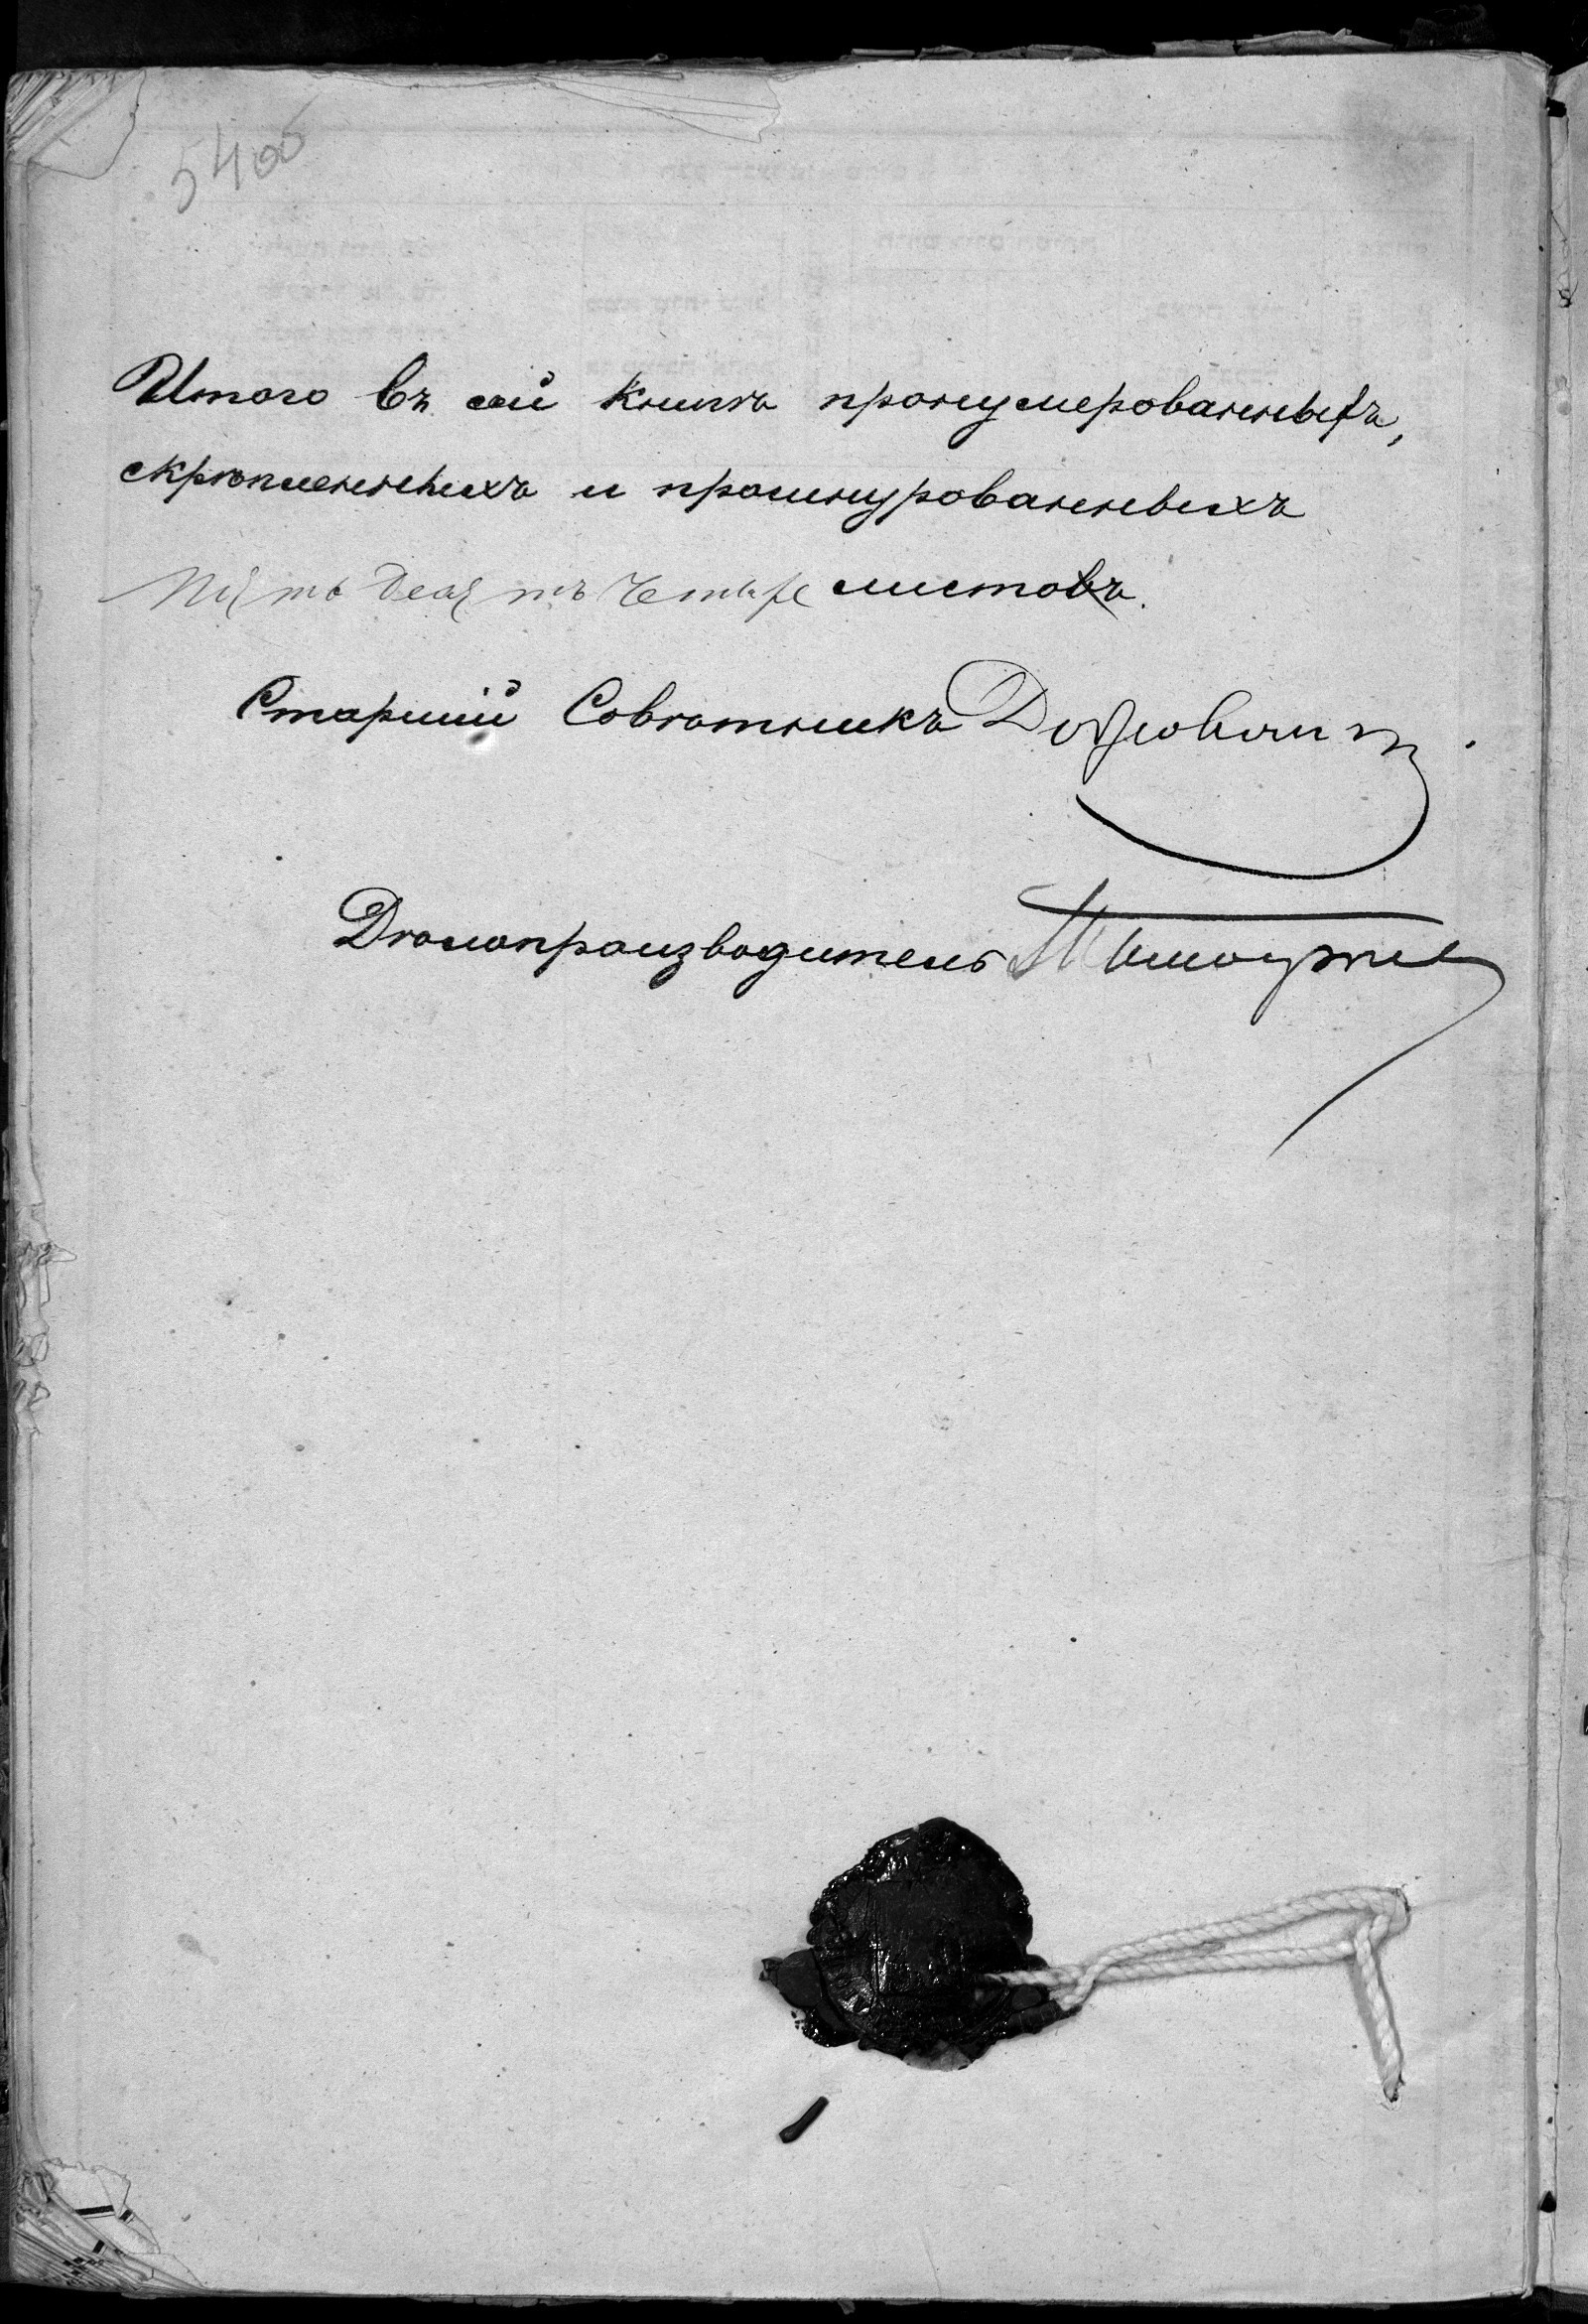 54об
Итого въ сей книгѣ пронумерованныхъ,
скрѣпленныхъ и прошнурованныхъ
Пятьдесятъ четыре листовъ.
Старшій Совѣтникъ
Дѣлопроизводитель